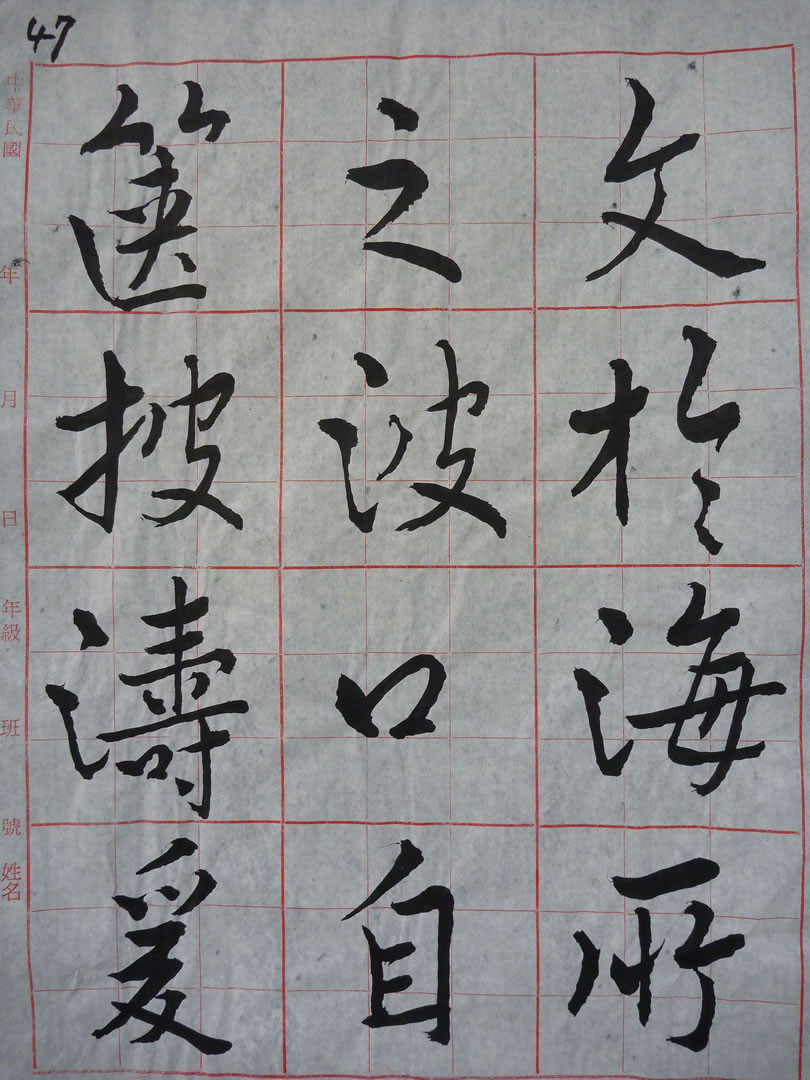 47
篋之文
披波於
濤口海
爰自所
中華民國 年 月 日 年級 班 號 姓名